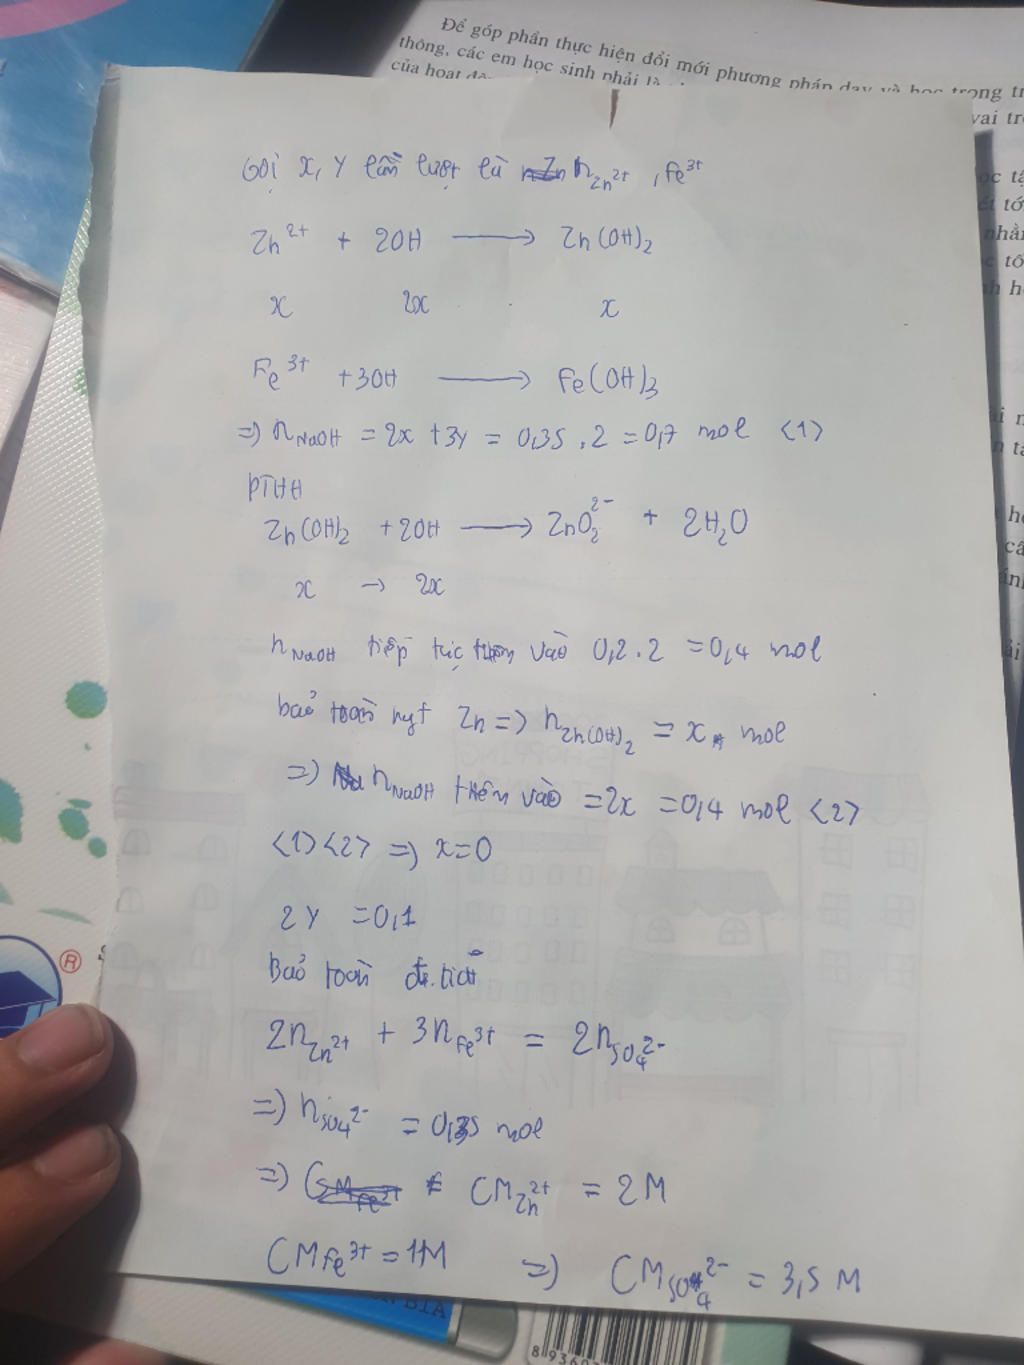 Để góp phần thực hiện đổi mới phương pháp dạy và học trong
thông, các em học sinh phải là
của hoạt
vai
Gọi x, y lần lượt là n Zn²⁺, Fe³⁺
Zn²⁺ + 2OH → Zn(OH)₂
x 2x x
Fe³⁺ + 3OH → Fe(OH)₃
=> n NaOH = 2x + 3y = 0,35 . 2 = 0,7 mol <1>
PTHH
Zn(OH)₂ + 2OH → ZnO₂²⁻ + 2H₂O
x → 2x
n NaOH tiếp tục thêm vào 0,2 . 2 = 0,4 mol
bảo toàn nyt Zn => n Zn(OH)₂ = x mol
=> n NaOH thêm vào = 2x = 0,4 mol <2>
<1> <2> => x = 0
2 y = 0,1
Bảo toàn đ.tích
2n Zn²⁺ + 3n Fe³⁺ = 2n SO₄²⁻
=> n SO₄²⁻ = 0,35 mol
=> CM Zn²⁺ = 2M
CM Fe³⁺ = 1M => CM SO₄²⁻ = 3,5 M
®
BIA